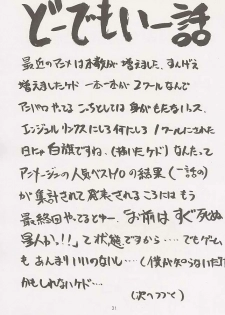 どーでもいー話
最近のアニメは本数が増えました。すんげえ
増えましたケド 一本一本が2クールなんで
アンドロやってる こっちとしては身がもたないっス。
エンジェルリンクスにしろ何にしろ 1クールに
日にゃ白旗ですね。(描いたケド)なんたって
アニメージュの人気ベスト10の結果(一話の)
が集計されて発表されるころにはもう
最終回やってるとゆー。お前はすぐ死ぬ
星人か。!!って状態ですから‥‥でもゲーム
もあんまりいいのないし…(僕が知らないだけ
かもしれないケド…
(次へつづく)
21